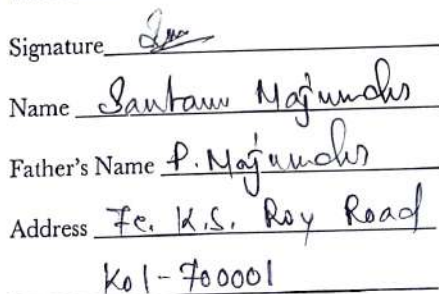 Signature
Name Santanu Majumder
Father's Name P. Majumder
Address 7C. K.S. Roy Road
Kol-700001